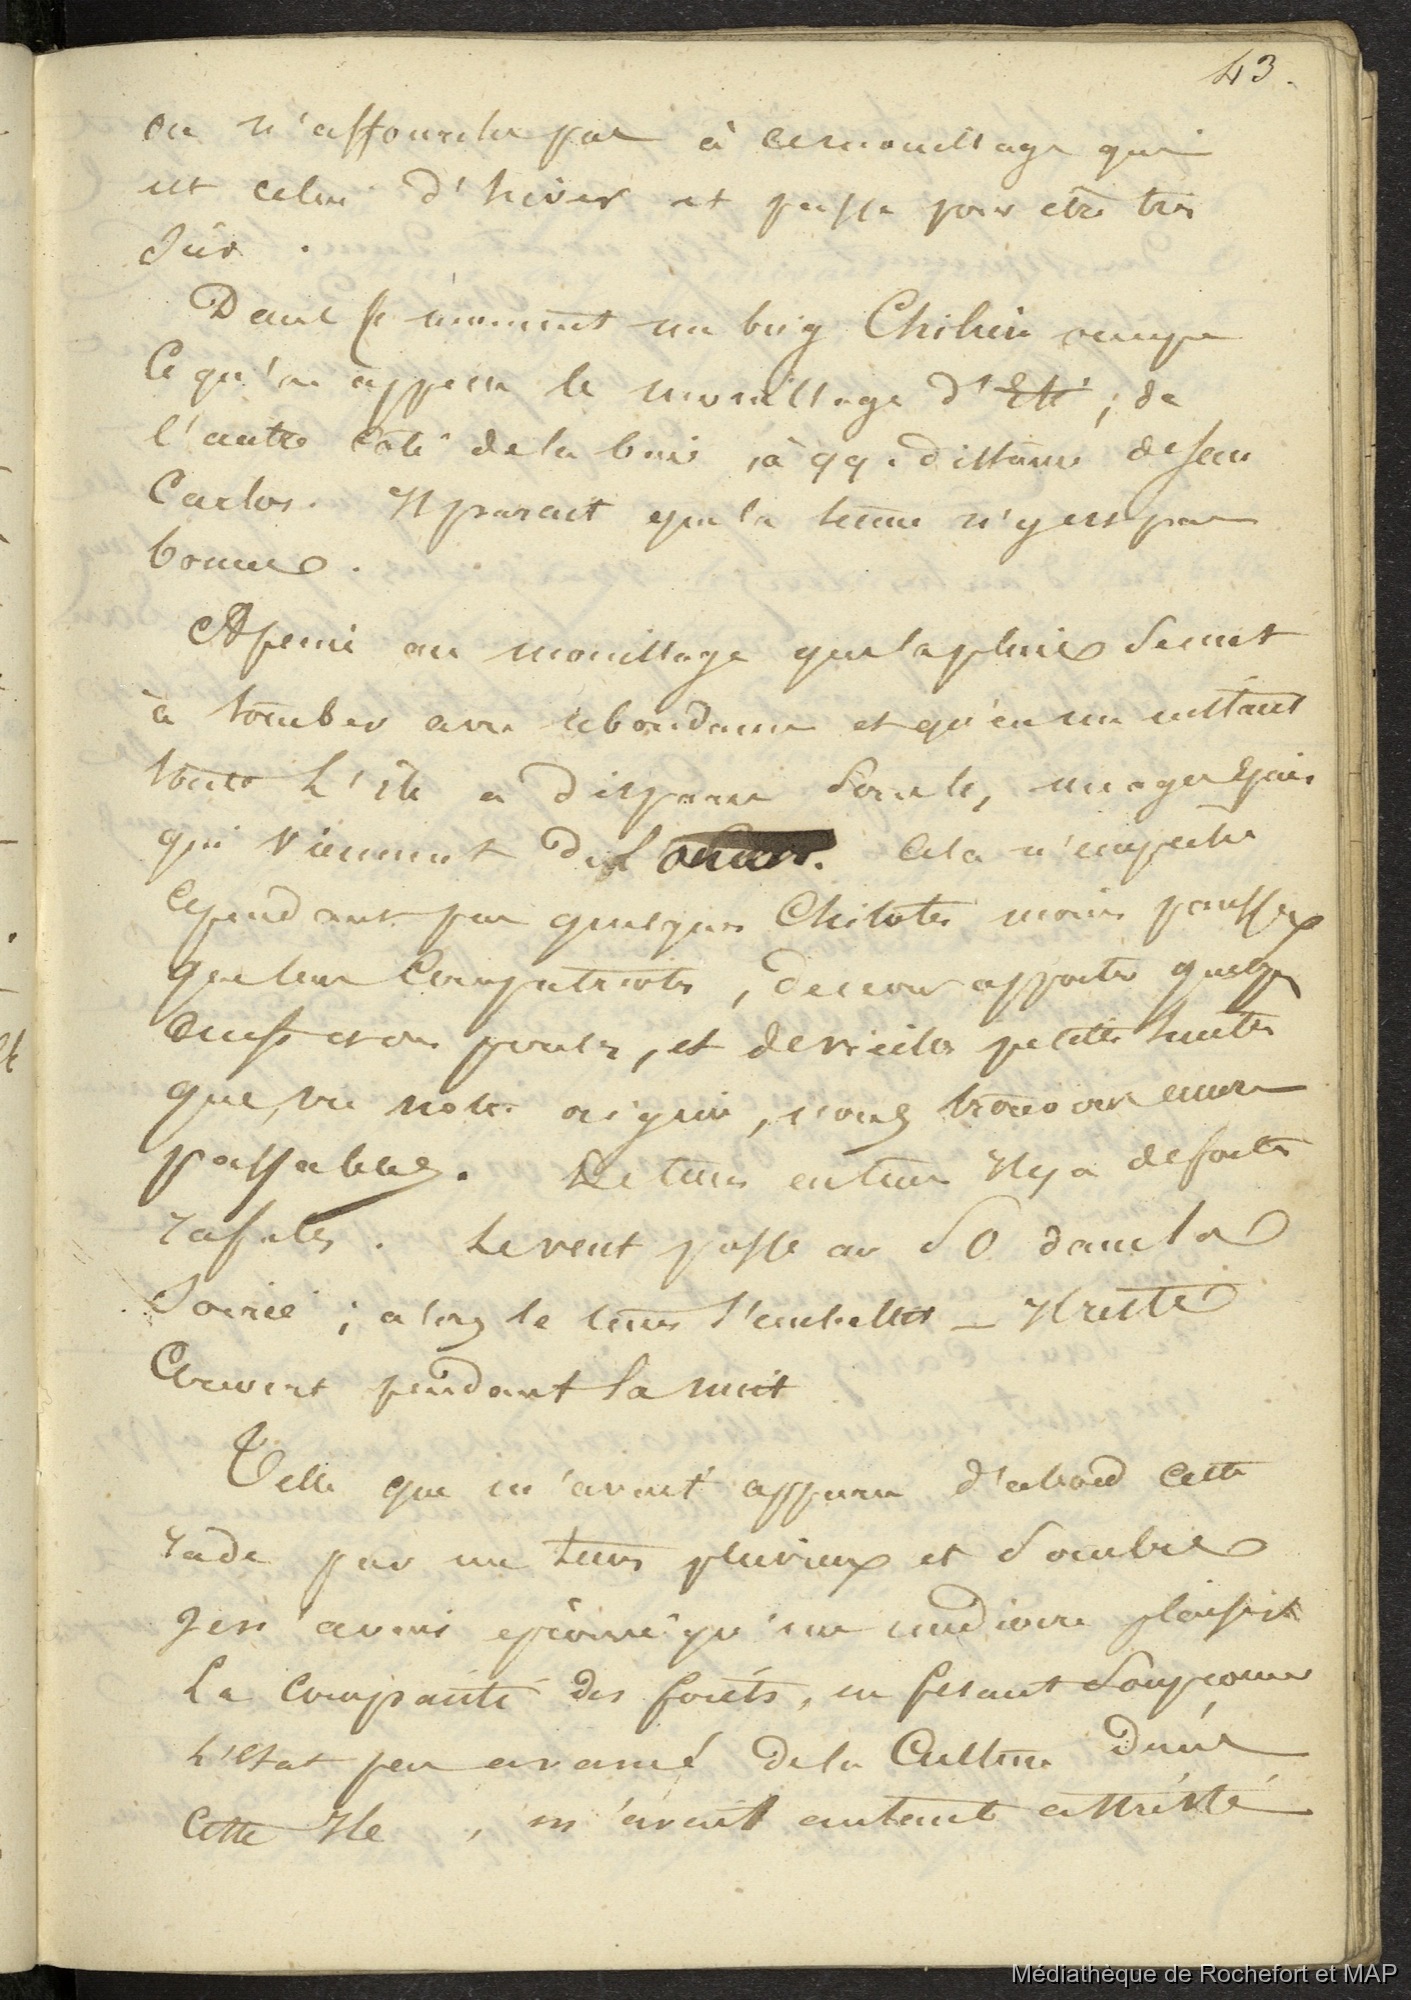 43.
on n'affourche pas à ce mouillage qui
est celui d'hiver et passe pour être très
sûr.
Dans ce moment un brig Chilien occupe
ce qu'on appelle le mouillage d'Eté ; de
l'autre côté de la baie, à qq. distance de San
Carlos. Il parait que la tenue n'y est pas
bonne.
A peine au mouillage que la pluie se met
à tomber avec abondance et qu'en un instant
toute L'ile a disparu sous les nuages épais
qui viennent de l'ouest. Cela n'empêche
cependant pas quelques Chilotes moins
que leur compatriotes, de nous apporter quelques
oeufs et des poules, et de vieilles petites huitres
que, vu notre origine, nous trouvons encore
passables. De tems en tems Il y a de fortes
rafales. Le vent passe au SO dans la
Soirée ; alors le tems s'embellit _ Il reste
Couvert pendant la nuit
Telle que m'avait apparu d'abord cette
rade par un tems pluvieux et sombre
Je n'avais éprouvé qu'un médiocre plaisir
La compacité des forêts, en fesant soupçonner
L'état peu avancé de la Culture dans
Cette Ile, m'avait autant attristé
Médiathèque de Rochefort et MAP